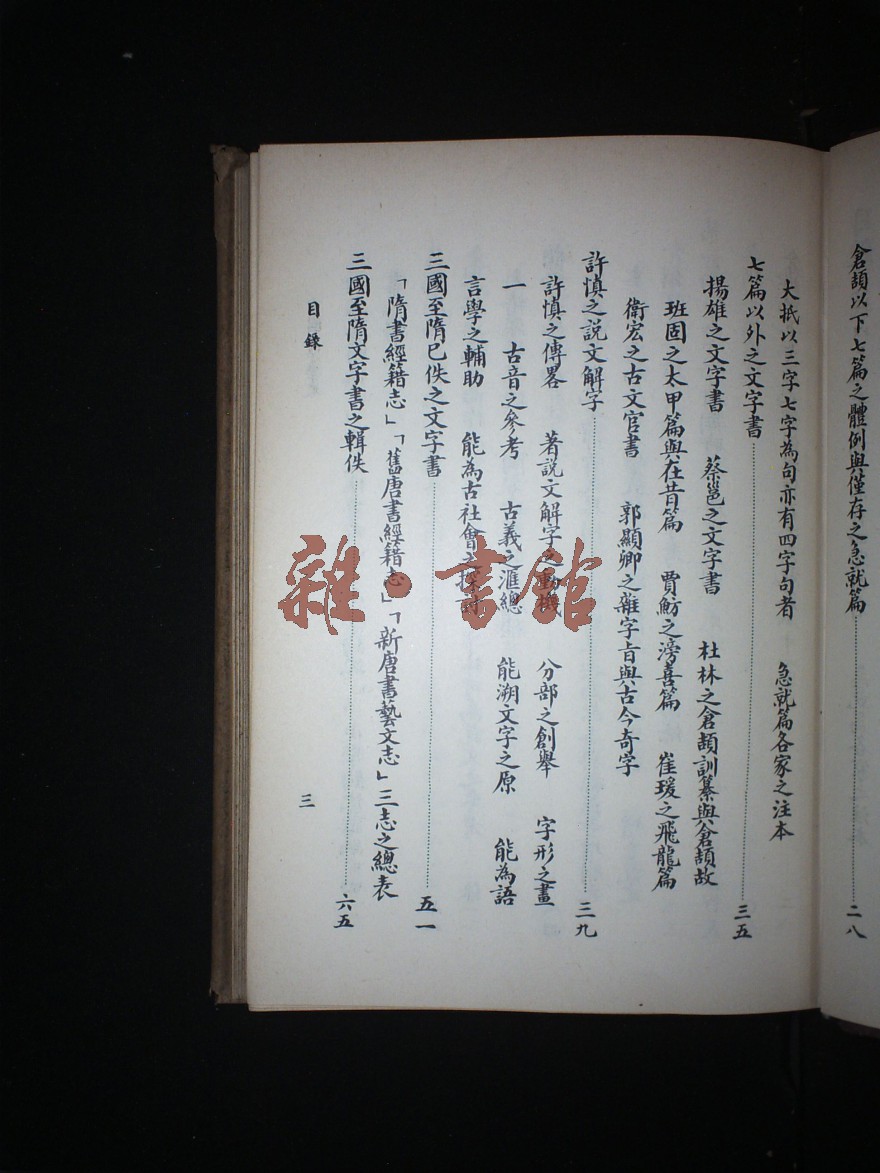 倉頡以下七篇之體例與僅存之急就篇 二八
大抵以三字七字為句亦有四字句者 急就篇各家之注本
七篇以外之文字書 三五
揚雄之文字書 蔡邕之文字書 杜林之倉頡訓纂與倉頡故
班固之太甲篇與在昔篇 賈魴之滂喜篇 崔瑗之飛龍篇
衛宏之古文官書 郭顯卿之雜字旨與古今奇字
許慎之說文解字 三九
許慎之傳畧 著說文解字之動機 分部之創舉 字形之畫
一 古音之參考 古義之滙總 能溯文字之原 能為語
言學之輔助 能為古社會之探討
三國至隋已佚之文字書 五一
「隋書經籍志」「舊唐書經籍志」「新唐書藝文志」三志之總表
三國至隋文字書之輯佚 六五
目錄 三
雜·書館